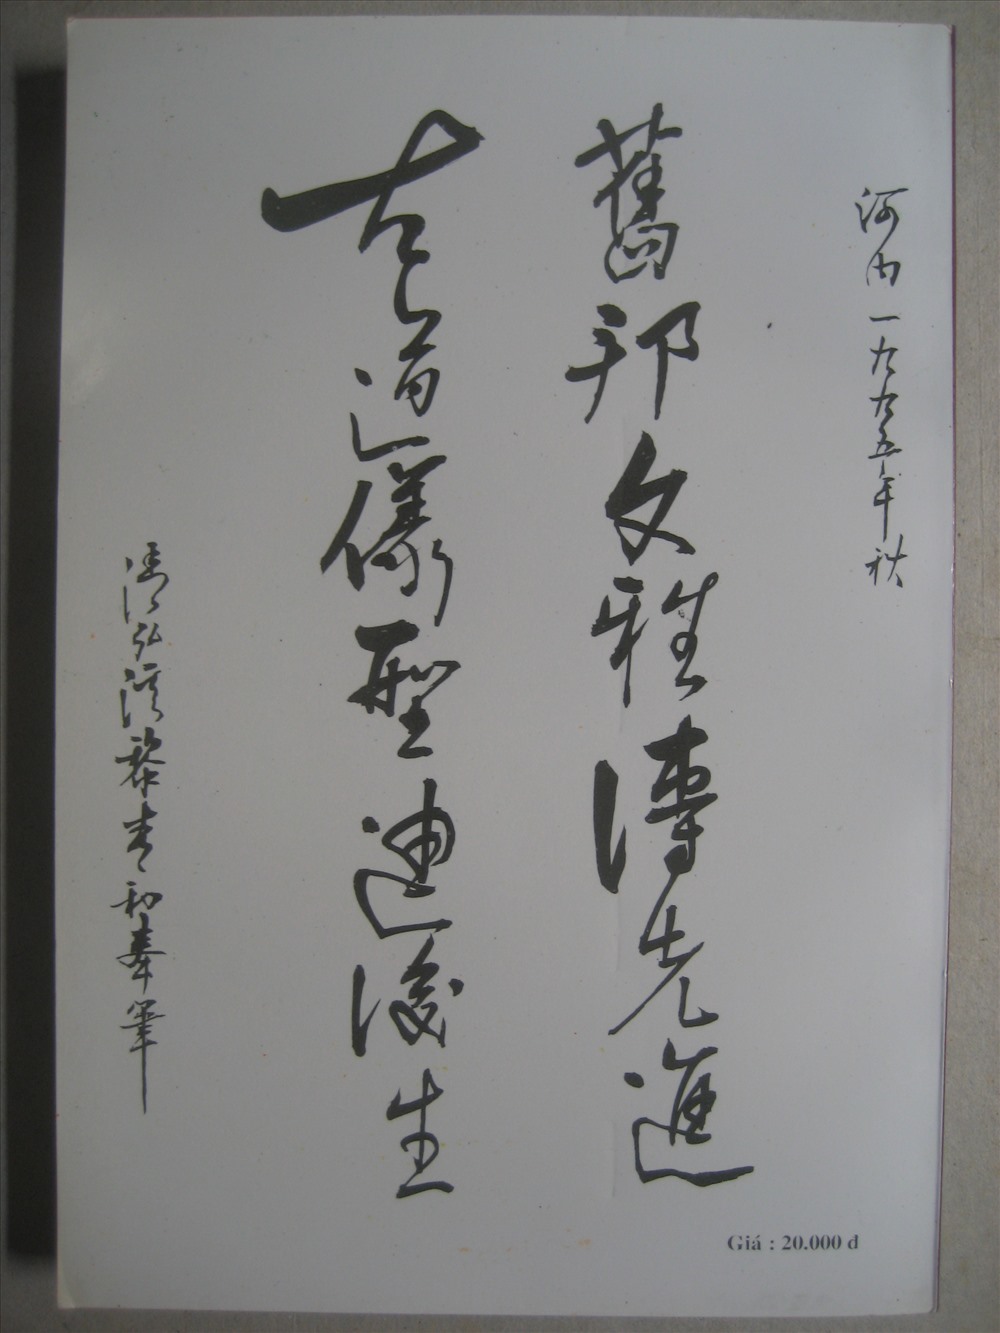 河内一九九五年秋
舊邦文雅傳先進
古道儀型迪後生
清弘溪黎春和奉筆
Giá : 20.000 đ